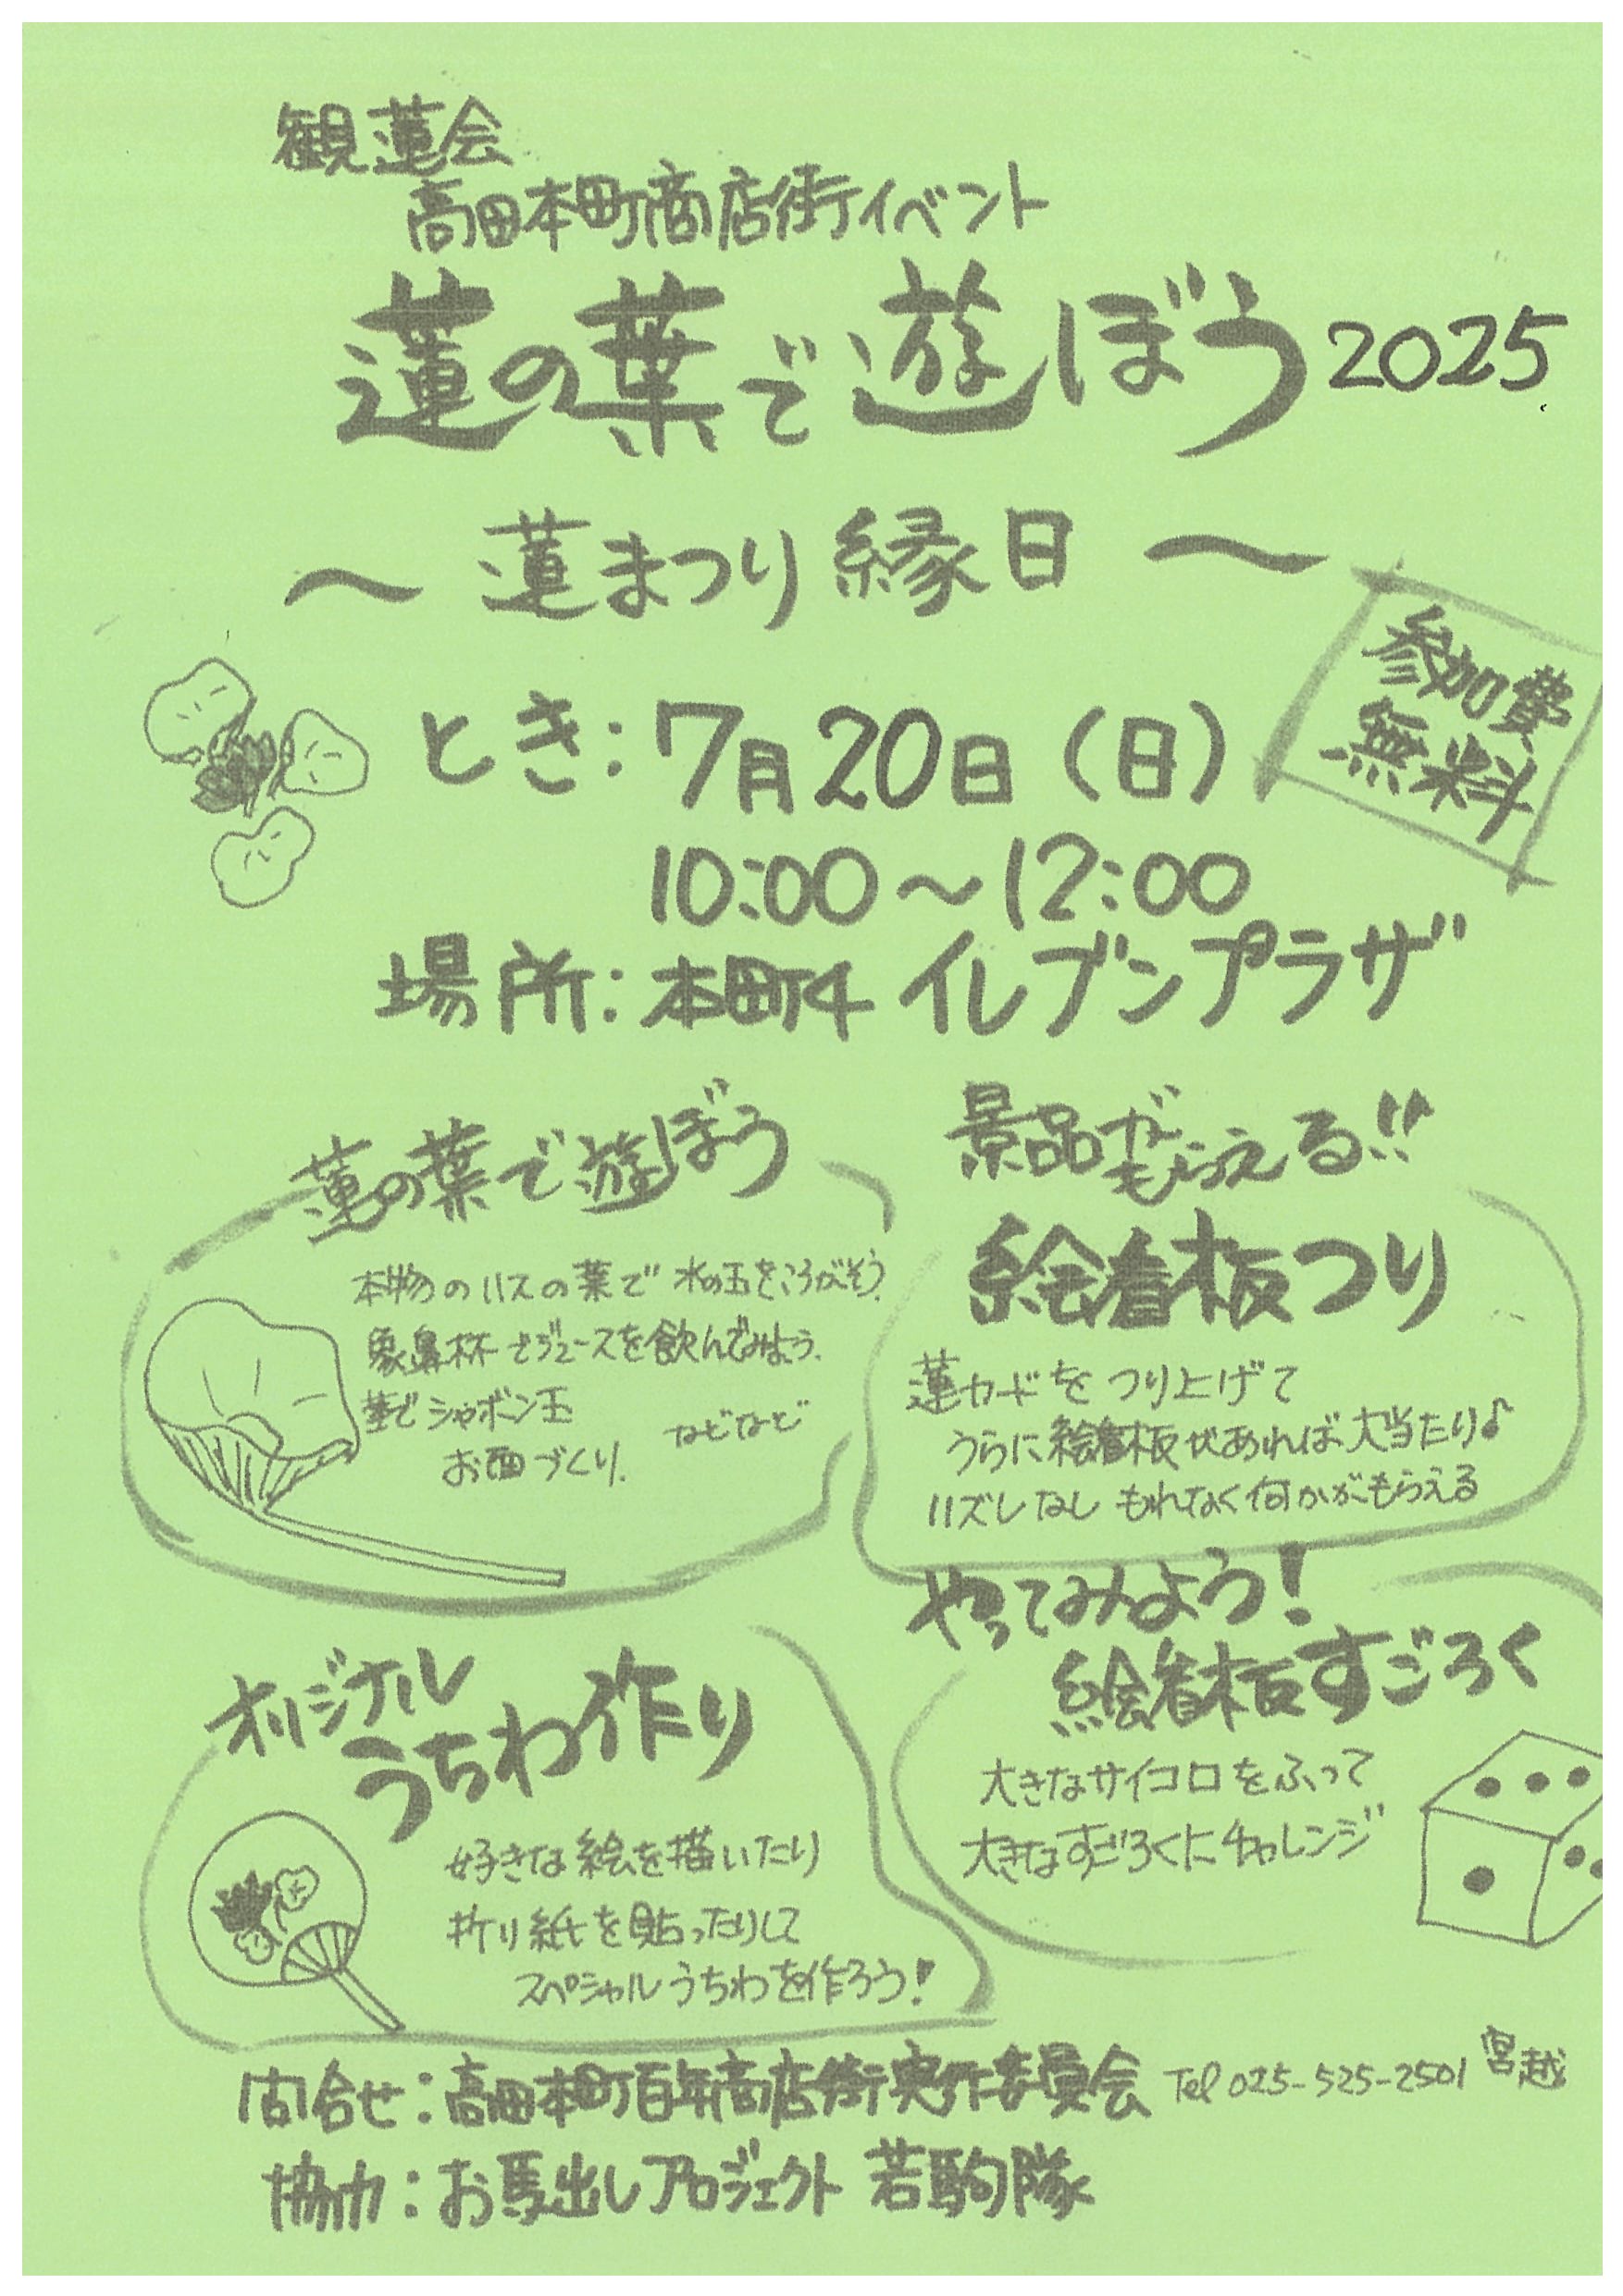 観蓮会
高田本町商店街イベント
蓮の葉で遊ぼう2025
～蓮まつり縁日～
参加費
無料
とき：7月20日（日）
10:00～12:00
場所：本町4 イレブンプラザ
蓮の葉で遊ぼう
本物のハスの葉で水の玉をころがそう.
象鼻杯でジュースを飲んでみよう.
茎でシャボン玉
お面づくり. などなど
景品がもらえる!!
絵看板つり
蓮カードをつり上げて
うらに絵看板があれば大当たり♪
ハズレなし もれなく何かがもらえる
オリジナル
うちわ作り
好きな絵を描いたり
折り紙を貼ったりして
スペシャルうちわを作ろう!
やってみよう!
絵看板すごろく
大きなサイコロをふって
大きなすごろくにチャレンジ
問合せ：高田本町百年商店街実行委員会 Tel 025-525-2501 宮越
協力：お馬出しプロジェクト 若駒隊